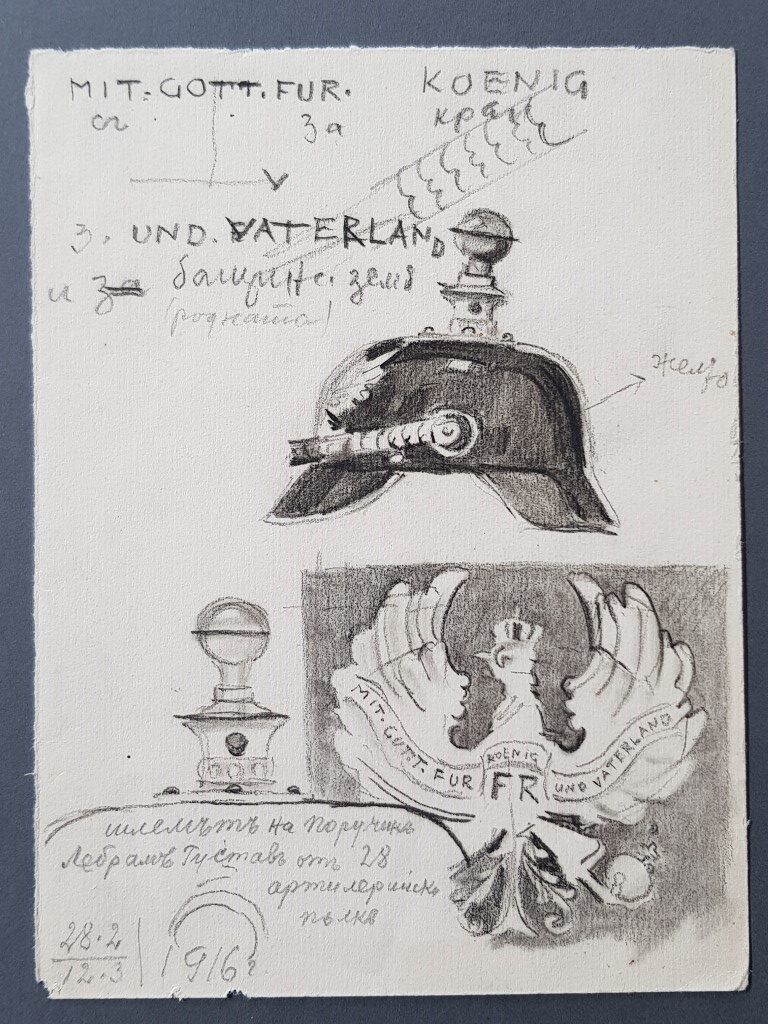 MIT. GOTT. FUR. KOENIG
съ за крал
3. UND. VATERLAND
и за бащин. земя
(родната)
желто
MIT. GOTT. FUR KOENIG UND VATERLAND
FR
шлемътъ на поручикъ
Лебрамъ Густавъ отъ 28
артилерийски
полкъ
28.2
12.3 1916 г